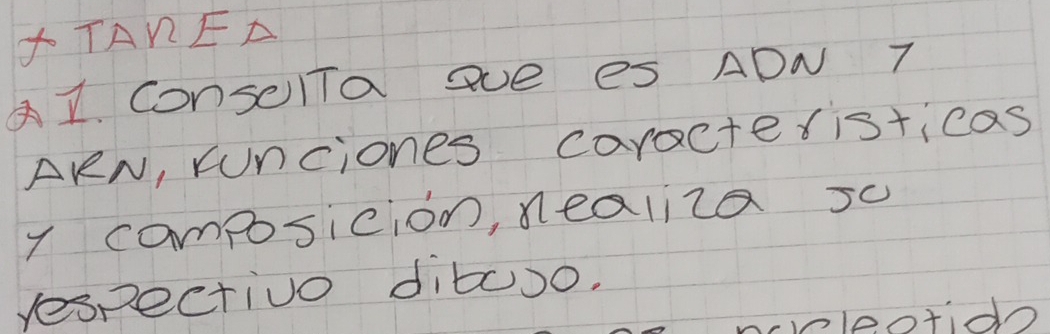 * TAREA
1. Consulta que es ADN y
ARN, funciones caracteristicas
y composición, realiza su
respectivo dibujo.
nucleotido